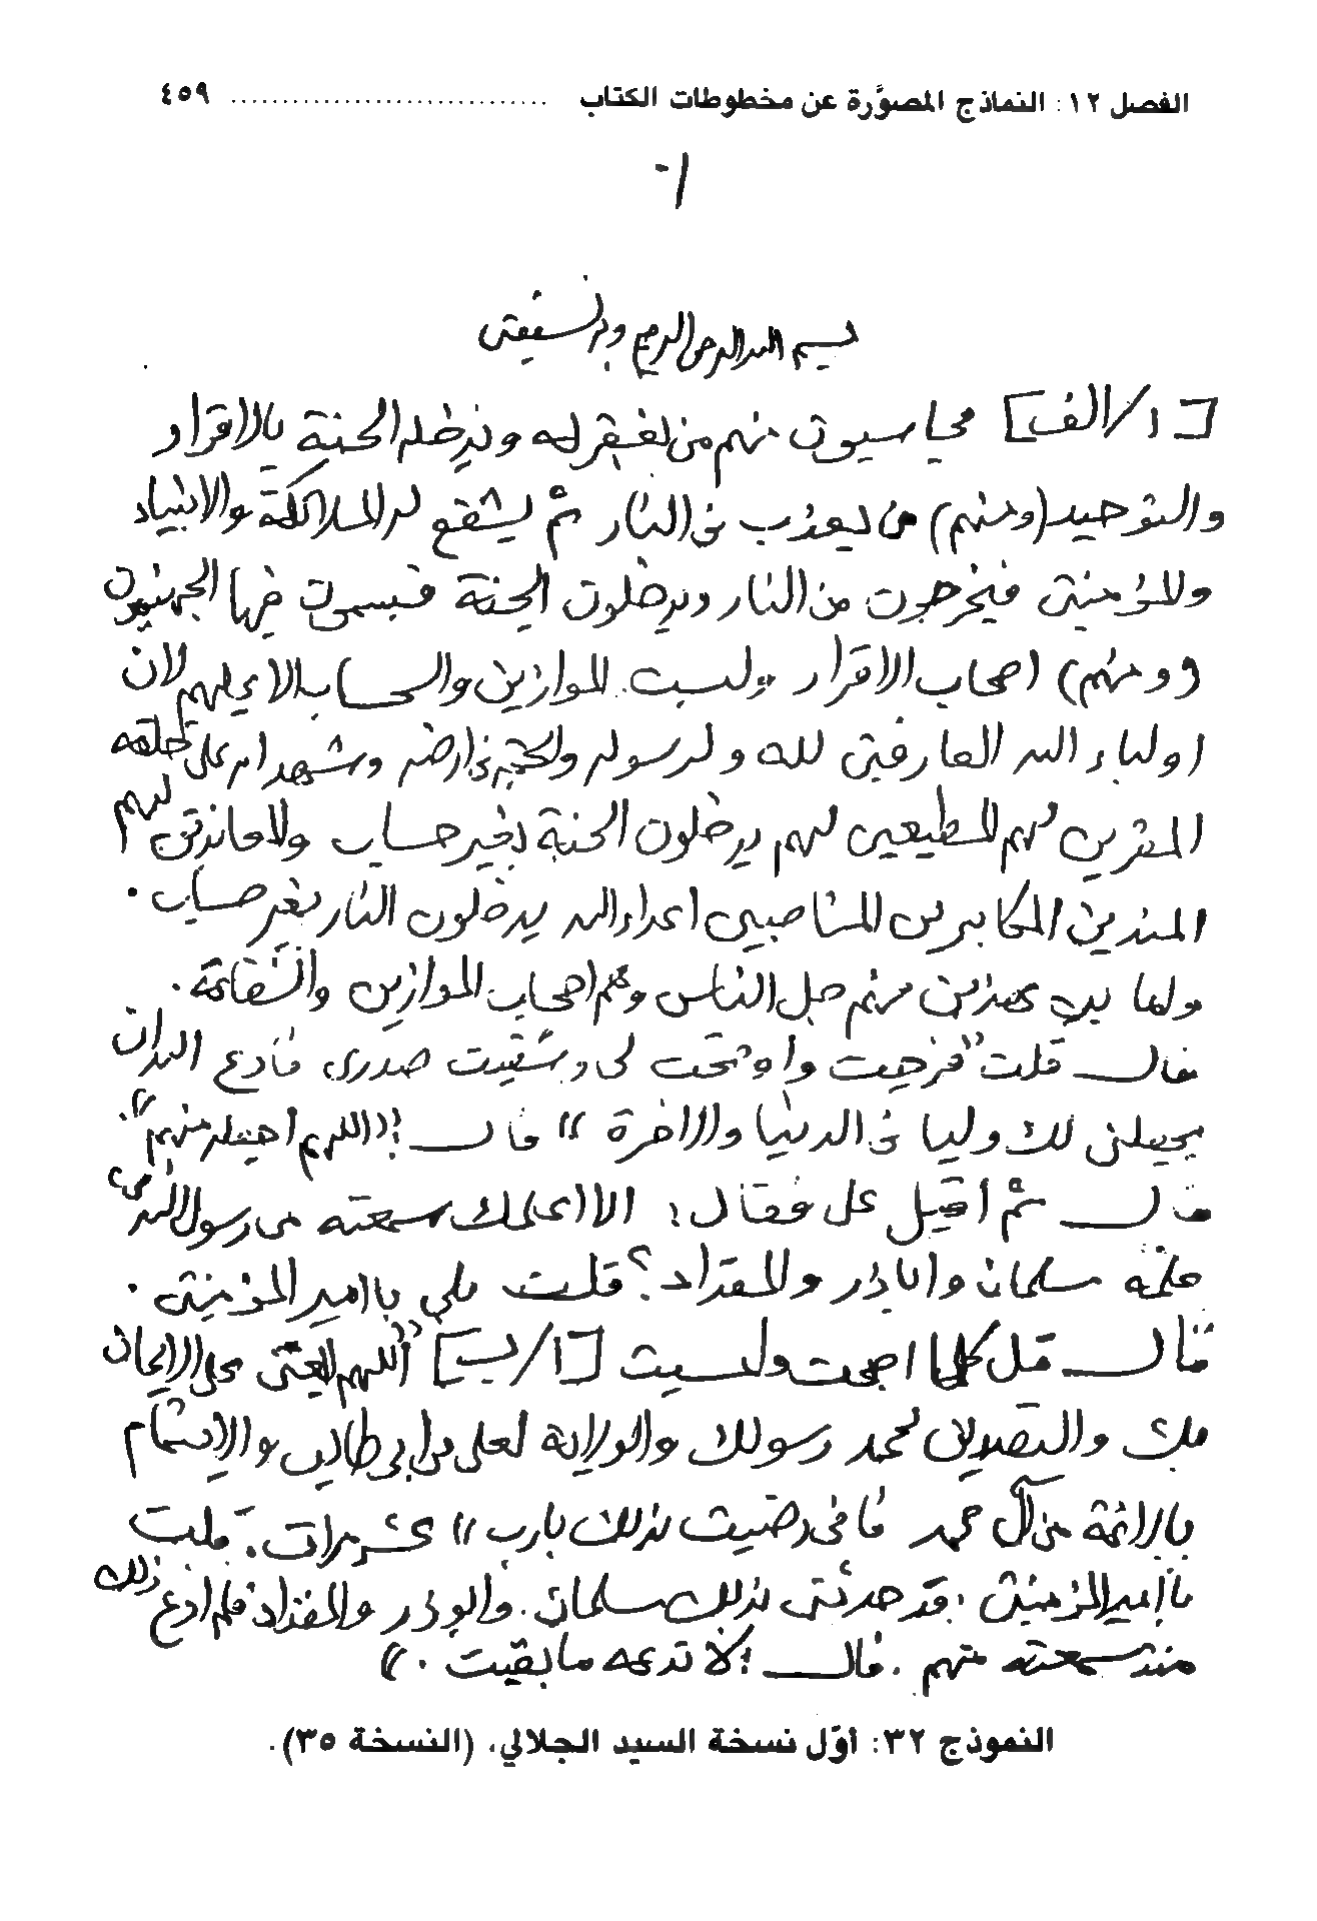 الفصل ١٢: النماذج المصوَّرة عن مخطوطات الكتاب .............................. ٤٥٩
-١
بسم الله الرحمن الرحيم وبه نستعين
[١/الف] محاسبون منهم من يغفر له ويدخله الجنة بالاقرار
والتوحيد (ومنهم) من يعذب في النار ثم يشفع له الملائكة والانبياء
والمؤمنين فيخرجون من النار ويدخلون الجنة فيسمون فيها الجهنميون
(ومنهم) اصحاب الاقرار وليست الموازين والحساب الا عليهم لان
اولياء الله العارفين لله ولرسوله والحجة في ارضه وشهدائه على خلقه
المقرين لهم المطيعين لهم يدخلون الجنة بغير حساب والمعاندين لهم
المنذرين المكابرين المناصبين اعداء الله يدخلون النار بغير حساب.
واما بين هذين منهم جل الناس وهم اصحاب الموازين والشفاعة.
قال قلت "فرجت واوضحت لي وشفيت صدري فادع الله ان
يجعلني لك وليا في الدنيا والاخرة" قال: "اللهم اجعله منهم".
قال ثم أقبل علي فقال: الا اعلمك سمعته من رسول الله ص
علمه سلمان واباذر والمقداد؟ قلت بلى يا امير المؤمنين.
قال قل كلما اصبحت وامسيت [١/ب] "اللهم ابعثني على الايمان
بك والتصديق لمحمد رسولك والولاية لعلي بن ابي طالب والايتمام
بالائمة من آل محمد فاني رضيت بذلك يارب" عشر مرات. قلت
يا أمير المؤمنين: قد حدثني بذلك سلمان وابوذر والمقداد فلم ادع ذلك
منذ سمعته منهم. قال: لا تدعه ما بقيت."
النموذج ٣٢: أوّل نسخة السيد الجلالي، (النسخة ٣٥).